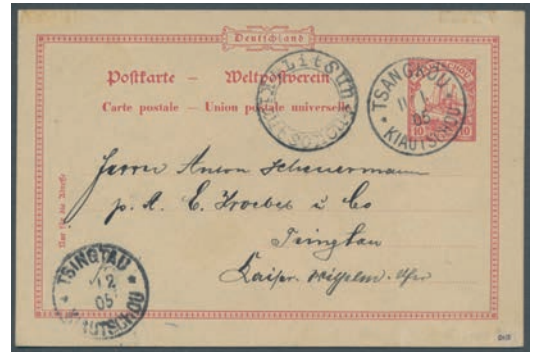 Deutschland
Postkarte – Weltpostverein
Carte postale – Union postale universelle
Litsun
KIAUTSCHOU
TSANGKOU
11 1
05
KIAUTSCHOU
10 10
Nur für die Adresse
Herrn Anton Scheuermann
p. A. C. Kroebel & Co
Tsingtau
Kaiser-Wilhelm-Ufer
TSINGTAU
12
05
KIAUTSCHOU